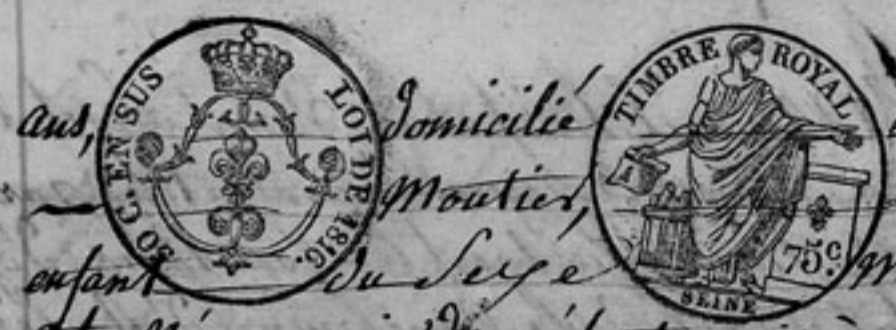 50 C. EN SUS
LOI DE 1816.
TIMBRE ROYAL
75c.
SEINE
ans, domicilié
Moutier,
enfant du Sexe